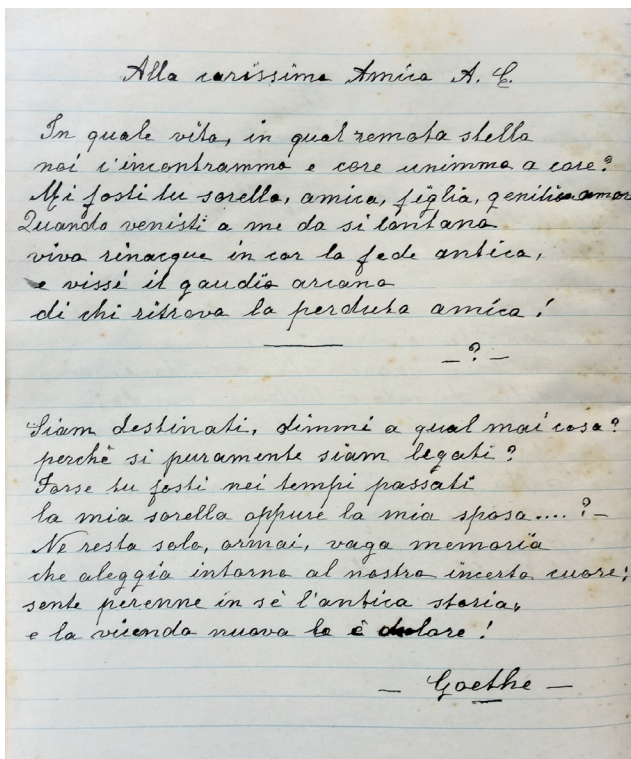 Alla carissima Amica A. C.
In quale vita, in qual remota stella
noi c'incontrammo e core unimmo a core?
Mi fosti tu sorella, amica, figlia, amor
Quando venisti a me da sì lontano
viva rinacque in cor la fede antica,
e vissi il gaudio arcano
di chi ritrova la perduta amica!
— ? —
Siam destinati, dimmi a qual mai cosa?
perchè si puramente siam legati?
Forse tu fosti nei tempi passati
la mia sorella oppure la mia sposa.... ? —
Ne resta solo, ormai, vaga memoria
che aleggia intorno al nostro incerto cuore;
sente perenne in sè l'antica storia,
e la vicenda nuova le è dolore!
— Goethe —